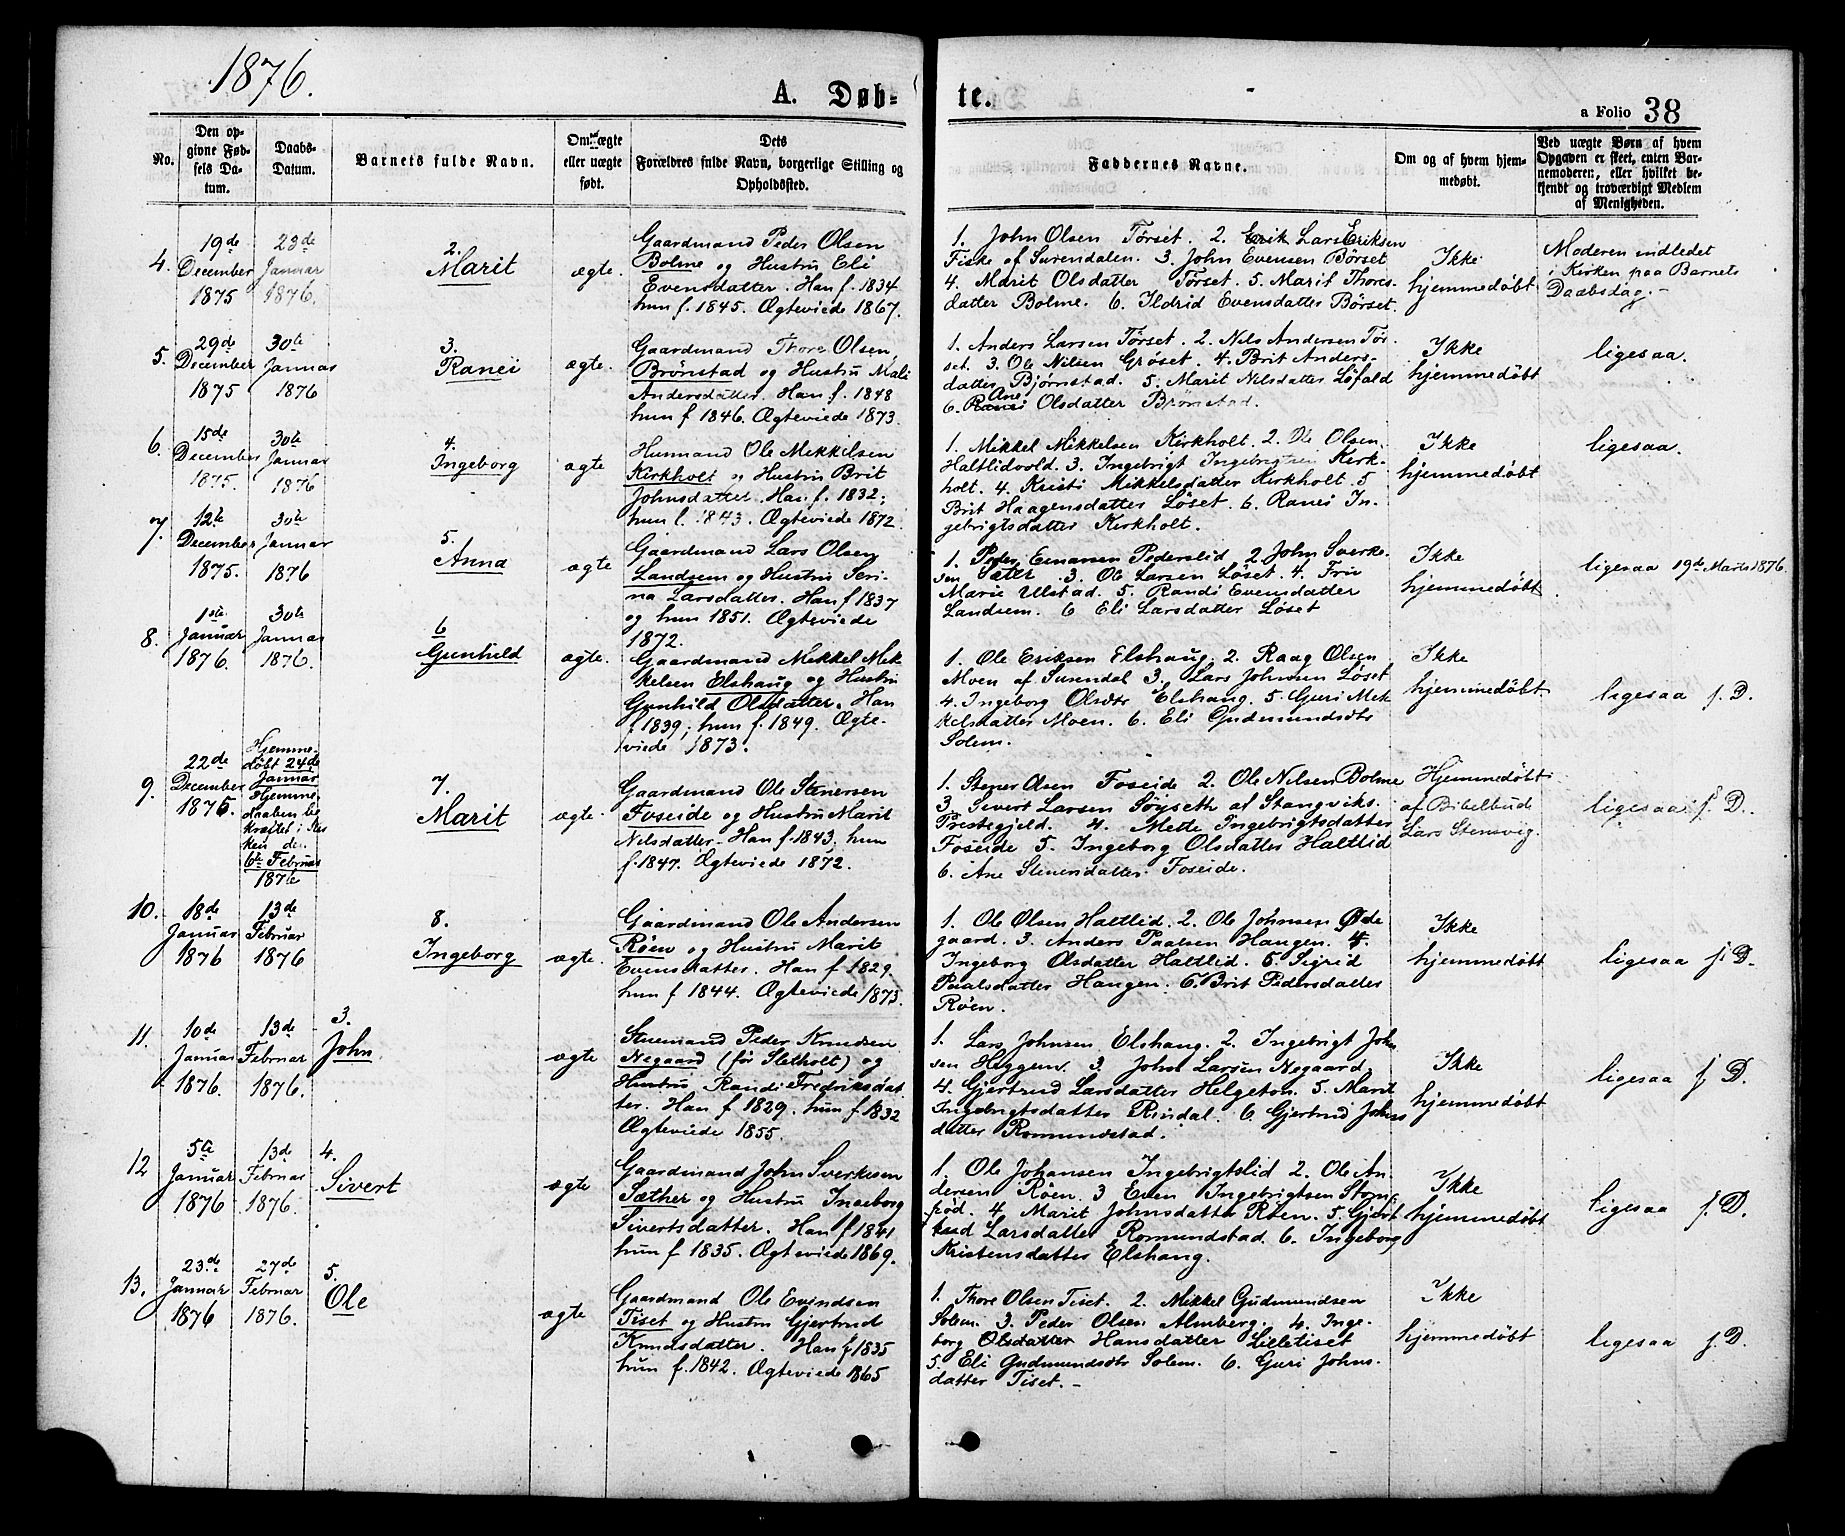 1876.
A. Døb-
te.
a Folio 38
No.
Den op-
givne Fød-
sels Da-
tum.
Daabs-
Datum.
Barnets fulde Navn.
Om ægte
eller uægte
født.
Dets
Forældres fulde Navn, borgerlige Stilling og
Opholdssted.
Faddernes Navne.
Om og af hvem hjem-
medøbt.
Ved uægte Børn af hvem
Opgaven er skeet, enten Bar-
nemoderen, eller hvilket be-
kjendt og troværdigt Medlem
af Menigheden.
4.
19de
December
1875
23de
Januar
1876.
2.
Marit
ægte.
Gaardmand Peder Olsen
Bolme og Hustru Eli
Evensdatter. Han f. 1834
hun f. 1845. Ægteviede 1867.
1. John Olsen Tørset. 2. Erik Lars Eriksen
Fiske af Surendalen. 3. John Evensen Børset
4. Marit Olsdatter Tørset. 5. Marit Thores-
datter Bolme. 6. Ildrid Evensdatter Børset.
Ikke
hjemmedøbt
Moderen indledet
i Kirken paa Barnets
Daabsdag.-
5.
29de
December
1875
30te
Januar
1876
3.
Ranei
ægte.
Gaardmand Thore Olsen
Brønstad og Hustru Mali
Andersdatter. Han f. 1848
hun f 1846. Ægteviede 1873.
1. Anders Larsen Tørset. 2. Nils Andersen Tør-
set. 3. Ole Nilsen Grøset. 4. Brit Anders-
datter Bjørnstad. 5. Marit Nilsdatter Løfald
Ane
6. Ranei Olsdatter Brønstad.
Ikke
hjemmedøbt
ligesaa.
6.
15de
December
1875.
30te
Januar
1876
4.
Ingeborg
ægte
Husmand Ole Mekkelsen
Kirkholt og Hustru Brit
Johnsdatter. Han f. 1832.
hun f. 1843. Ægteviede 1872.
1. Mikkel Mikkelsen Kirkholt. 2. Ole Olsen
Haltlidvold. 3. Ingebrigt Ingebrigtsen Kirk-
holt. 4. Kristi Mikkelsdatter Kirkholt. 5
Brit Haagensdatter Løset. 6. Ranei In-
gebrigtsdatter Kirkholt.
Ikke
hjemmedøbt
ligesaa.
7.
12te
December
1875.
30te
Januar
1876
5.
Anna
ægte
Gaardmand Lars Olsen
Landsem og Hustru Seri-
na Larsdatter. Han f 1837
og hun 1851. Ægteviede
1872.
1. Peder Einarsen Pederslid 2. John Sverke-
sen Sæter. 3. Ole Larsen Løset. 4. Fru
Marie Ulstad. 5. Randi Evensdatter
Landsem. 6 Eli Larsdatter Løset
Ikke
hjemmedøbt
ligesaa 19de Marts 1876.
8.
1ste
Januar
1876.
30te
Januar
1876.
6
Gunhild
ægte.
Gaardmand Mekkel Mek-
kelsen Elshaug og Hustru
Gunhild Olsdatter. Han
f. 1839; hun f. 1849. Ægte-
viede 1873.
1. Ole Eriksen Elshaug. 2. Raag Olsen
Moen af Surendal 3. Lars Johnsen Løset
4. Ingeborg Olsdtr Elshang. 5. Guri Mek-
kelsdatter Moen. 6. Eli Gudmundsdtr
Solem.
Ikke
hjemmedøbt
ligesaa f. D.
9.
22de
December
1875.
Hjemme-
døbt 24de
Januar
Hjemme-
daaben be
kræftet i Kir
ken den
6te Februar
1876
7.
Marit
ægte.
Gaardmand Ole Stenersen
Foseide og Hustru Marit
Nilsdatter. Han f. 1843. hun
f. 1847. Ægteviede 1872.
1. Stener Olsen Foseide 2. Ole Nilsen Bolme
3. Sivert Larsen Søgseth af Stangviks
Prestegjeld. 4. Mette Ingebrigtsdatter
Foseide 5. Ingeborg Olsdatter Haltlid
6. Ane Stenersdatter Foseide.
Hjemmedøbt
af Bibelbud
Lars Stensvig.
ligesaa f D.
10.
18de
Januar
1876
13de
Februar
1876
8.
Ingeborg
ægte.
Gaardmand Ole Andersen
Røen og Hustru Marit
Evensdatter. Han f 1829.
hun f 1844. Ægteviede 1873.
1. Ole Olsen Haltlid. 2. Ole Johnsen Øde
gaard. 3. Anders Paalsen Hangen. 4.
Ingeborg Olsdatter Haltlid. 5. Sigrid
Paalsdatter Hangen. 6. Brit Pedersdatter
Røen.
Ikke
hjemmedøbt
ligesaa f. D.
11.
10de
Januar
1876.
13de
Februar
1876.
3.
John
ægte
Stuemand Peder Knudsen
Negaard (før Sletholt) og
Hustru Randi Fredriksdat
ter. Han f 1829. hun f. 1832
Ægteviede 1855.
1. Lars Johnsen Elshang. 2. Ingebrigt John
sen Heggem. 3. John Larsen Negaard
4. Gjertrud Larsdatter Helgeton. 5. Marit
Ingebrigtsdatter Rindal. 6. Gjertrud Johns
datter Romundstad.
Ikke
hjemmedøbt
ligesaa f D.
12
5te
Januar
1876
13de
Februar
1876.
4.
Sivert
ægte
Gaardmand John Sverkesen
Sæther og Hustru Ingeborg
Sivertsdatter. Han f 1841
hun f 1835. Ægteviede 1869.
1. Ole Johansen Ingebrigtslid 2. Ole An
dersen Røen. 3 Even Ingebrigtsen Stom-
prød. 4 Marit Johnsdatter Røen. 5. Gjert
rud Larsdatter Romundstad 6. Ingeborg
Kristensdatter Elshang.
Ikke
hjemmedøbt
ligesaa f. D.
13.
23de
Januar
1876
27de
Februar
1876.
5.
Ole
ægte
Gaardmand Ole Evindsen
Tiset og Hustru Gjertrud
Knudsdatter. Han f. 1835
hun f. 1842. Ægteviede 1865
1. Thore Olsen Tiset. 2. Mikkel Gudmundsen
Solem 3. Peder Olsen Almberg. 4. Inge-
borg Olsdatter Hansdatter Lilletiset
5. Eli Gudmundsdtr Solem. 6. Guri Johns-
datter Tiset.-
Ikke
hjemmedøbt
ligesaa f. D.